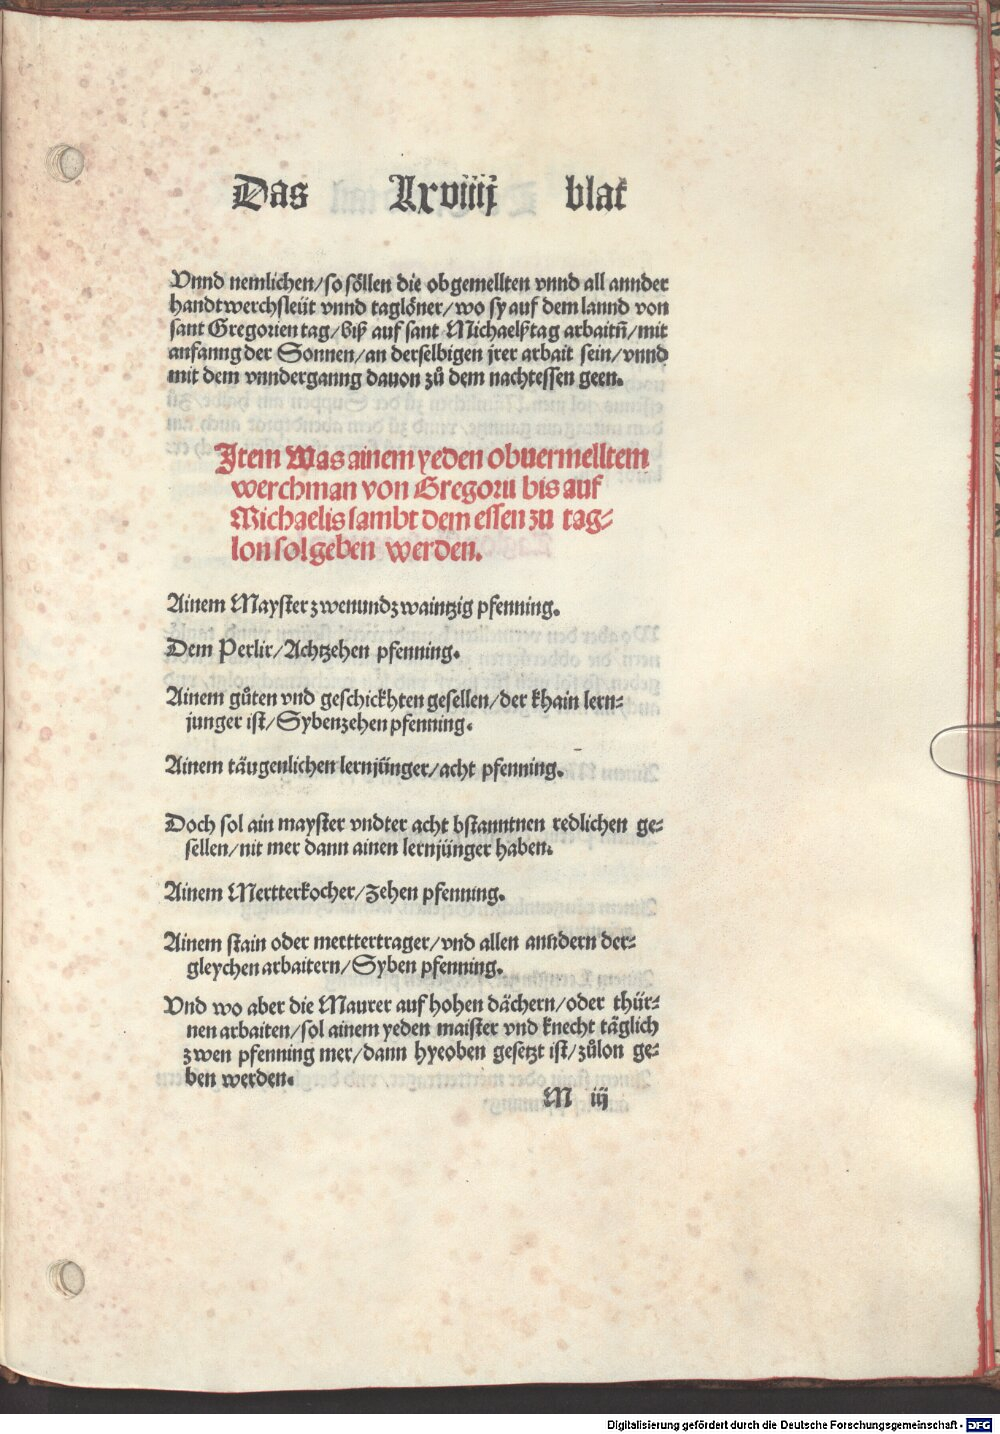 Das lxviiij blat
Vnnd nemlichen/so söllen die obgemellten vnnd all annder
handtwerchsleüt vnnd taglöner/wo sy auf dem lannd von
sant Gregorien tag/biß auf sant Michaelßtag arbaitn̄/mit
anfanng der Sonnen/an derselbigen jrer arbait sein/vnnd
mit dem vnnderganng dauon zů dem nachtessen geen.
Item Was ainem yeden obuermelltem
werchman von Gregorii bis auf
Michaelis sambt dem essen zu tag⸗
lon sol geben werden.
Ainem Mayster zwenundzwaintzig pfenning.
Dem Perlir/Achtzehen pfenning.
Ainem gůten vnd geschickhten gesellen/der khain lern⸗
junger ist/Sybenzehen pfenning.
Ainem täugenlichen lernjünger/acht pfenning.
Doch sol ain mayster vndter acht bstanntnen redlichen ge⸗
sellen/nit mer dann ainen lernjünger haben.
Ainem Mertterkocher/Zehen pfenning.
Ainem stain oder merttertrager/vnd allen anndern der⸗
gleychen arbaitern/Syben pfenning.
Vnd wo aber die Maurer auf hohen dächern/oder thür⸗
nen arbaiten/sol ainem yeden maister vnd knecht täglich
zwen pfenning mer/dann hyeoben gesetzt ist/zůlon ge⸗
ben werden.
M iij
Digitalisierung gefördert durch die Deutsche Forschungsgemeinschaft - DFG